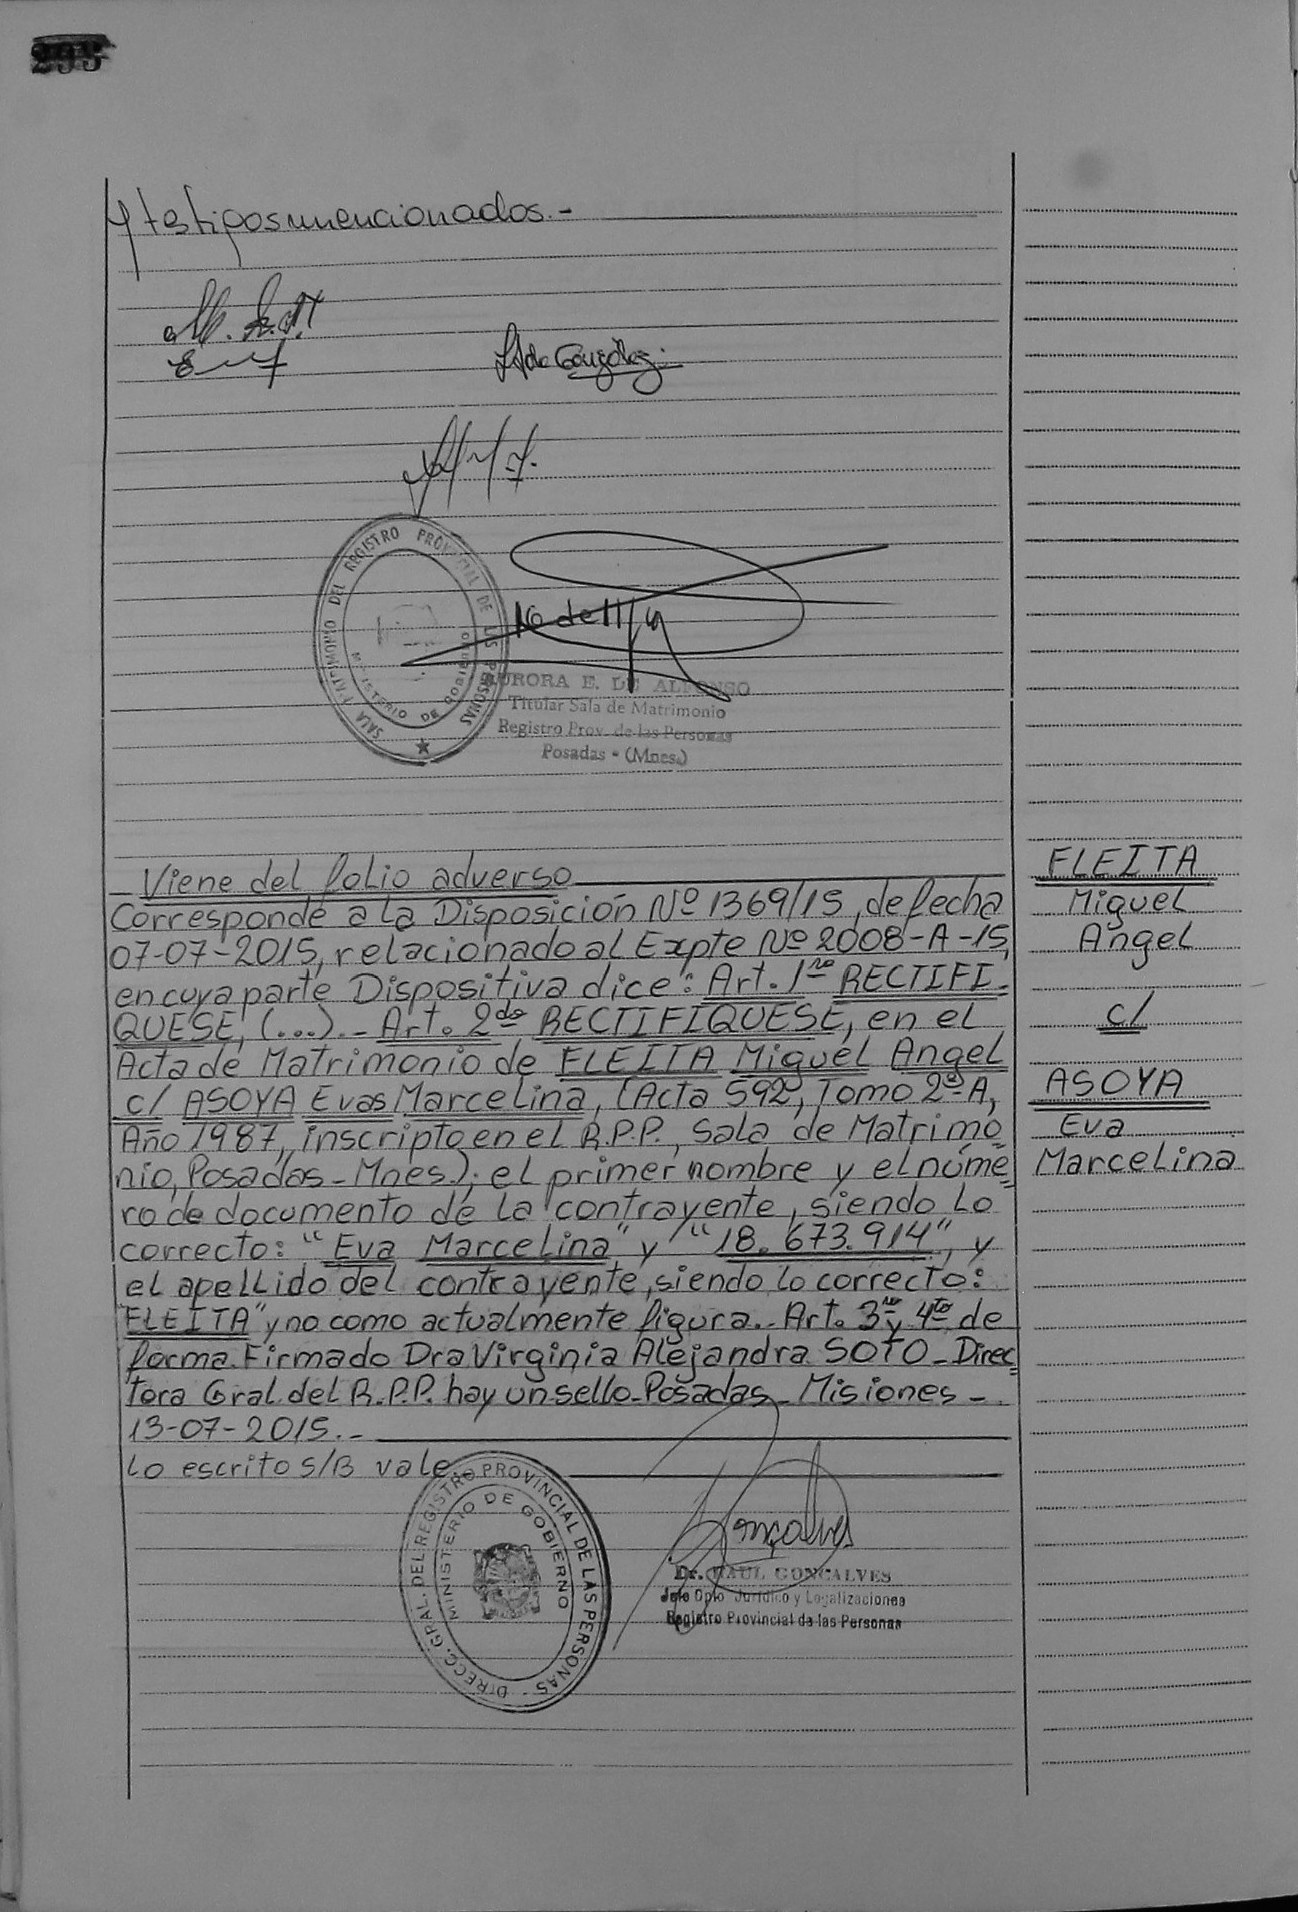 295
y testigos mencionados.-
Ilda González.
SALA MATRIMONIO DEL REGISTRO PROVINCIAL DE LAS PERSONAS
MINISTERIO DE GOBIERNO
AURORA E. DE ALFONSO
Titular Sala de Matrimonio
Registro Prov. de las Personas
Posadas - (Mnes.)
_ Viene del folio adverso
Corresponde a la Disposición Nº 1369/15, de fecha
07-07-2015, relacionado al Expte Nº 2008-A-15,
en cuya parte Dispositiva dice: Art. 1ro RECTIFI-
QUESE, (...)._ Art. 2do RECTIFIQUESE, en el
Acta de Matrimonio de FLEITA Miguel Angel
c/ ASOYA Evas Marcelina, (Acta 592, Tomo 2º-A,
Año 1987, inscripto en el R.P.P., Sala de Matrimo=
nio, Posadas - Mnes.); el primer nombre y el núme=
ro de documento de la contrayente, siendo lo
correcto: "Eva Marcelina" y "18.673.914", y
el apellido del contrayente, siendo lo correcto:
"FLEITA" y no como actualmente figura.- Art. 3ro y 4to de
forma. Firmado Dra Virginia Alejandra SOTO - Direc=
tora Gral. del R.P.P. hay un sello - Posadas - Misiones -
13-07-2015.-
Lo escrito S/B vale
FLEITA
Miguel
Angel
c/
ASOYA
Eva
Marcelina
DIRECC. GRAL. DEL REGISTRO PROVINCIAL DE LAS PERSONAS
MINISTERIO DE GOBIERNO
Gonçalves
Dr. RAUL GONCALVES
Jefe Dpto Jurídico y Legalizaciones
Registro Provincial de las Personas